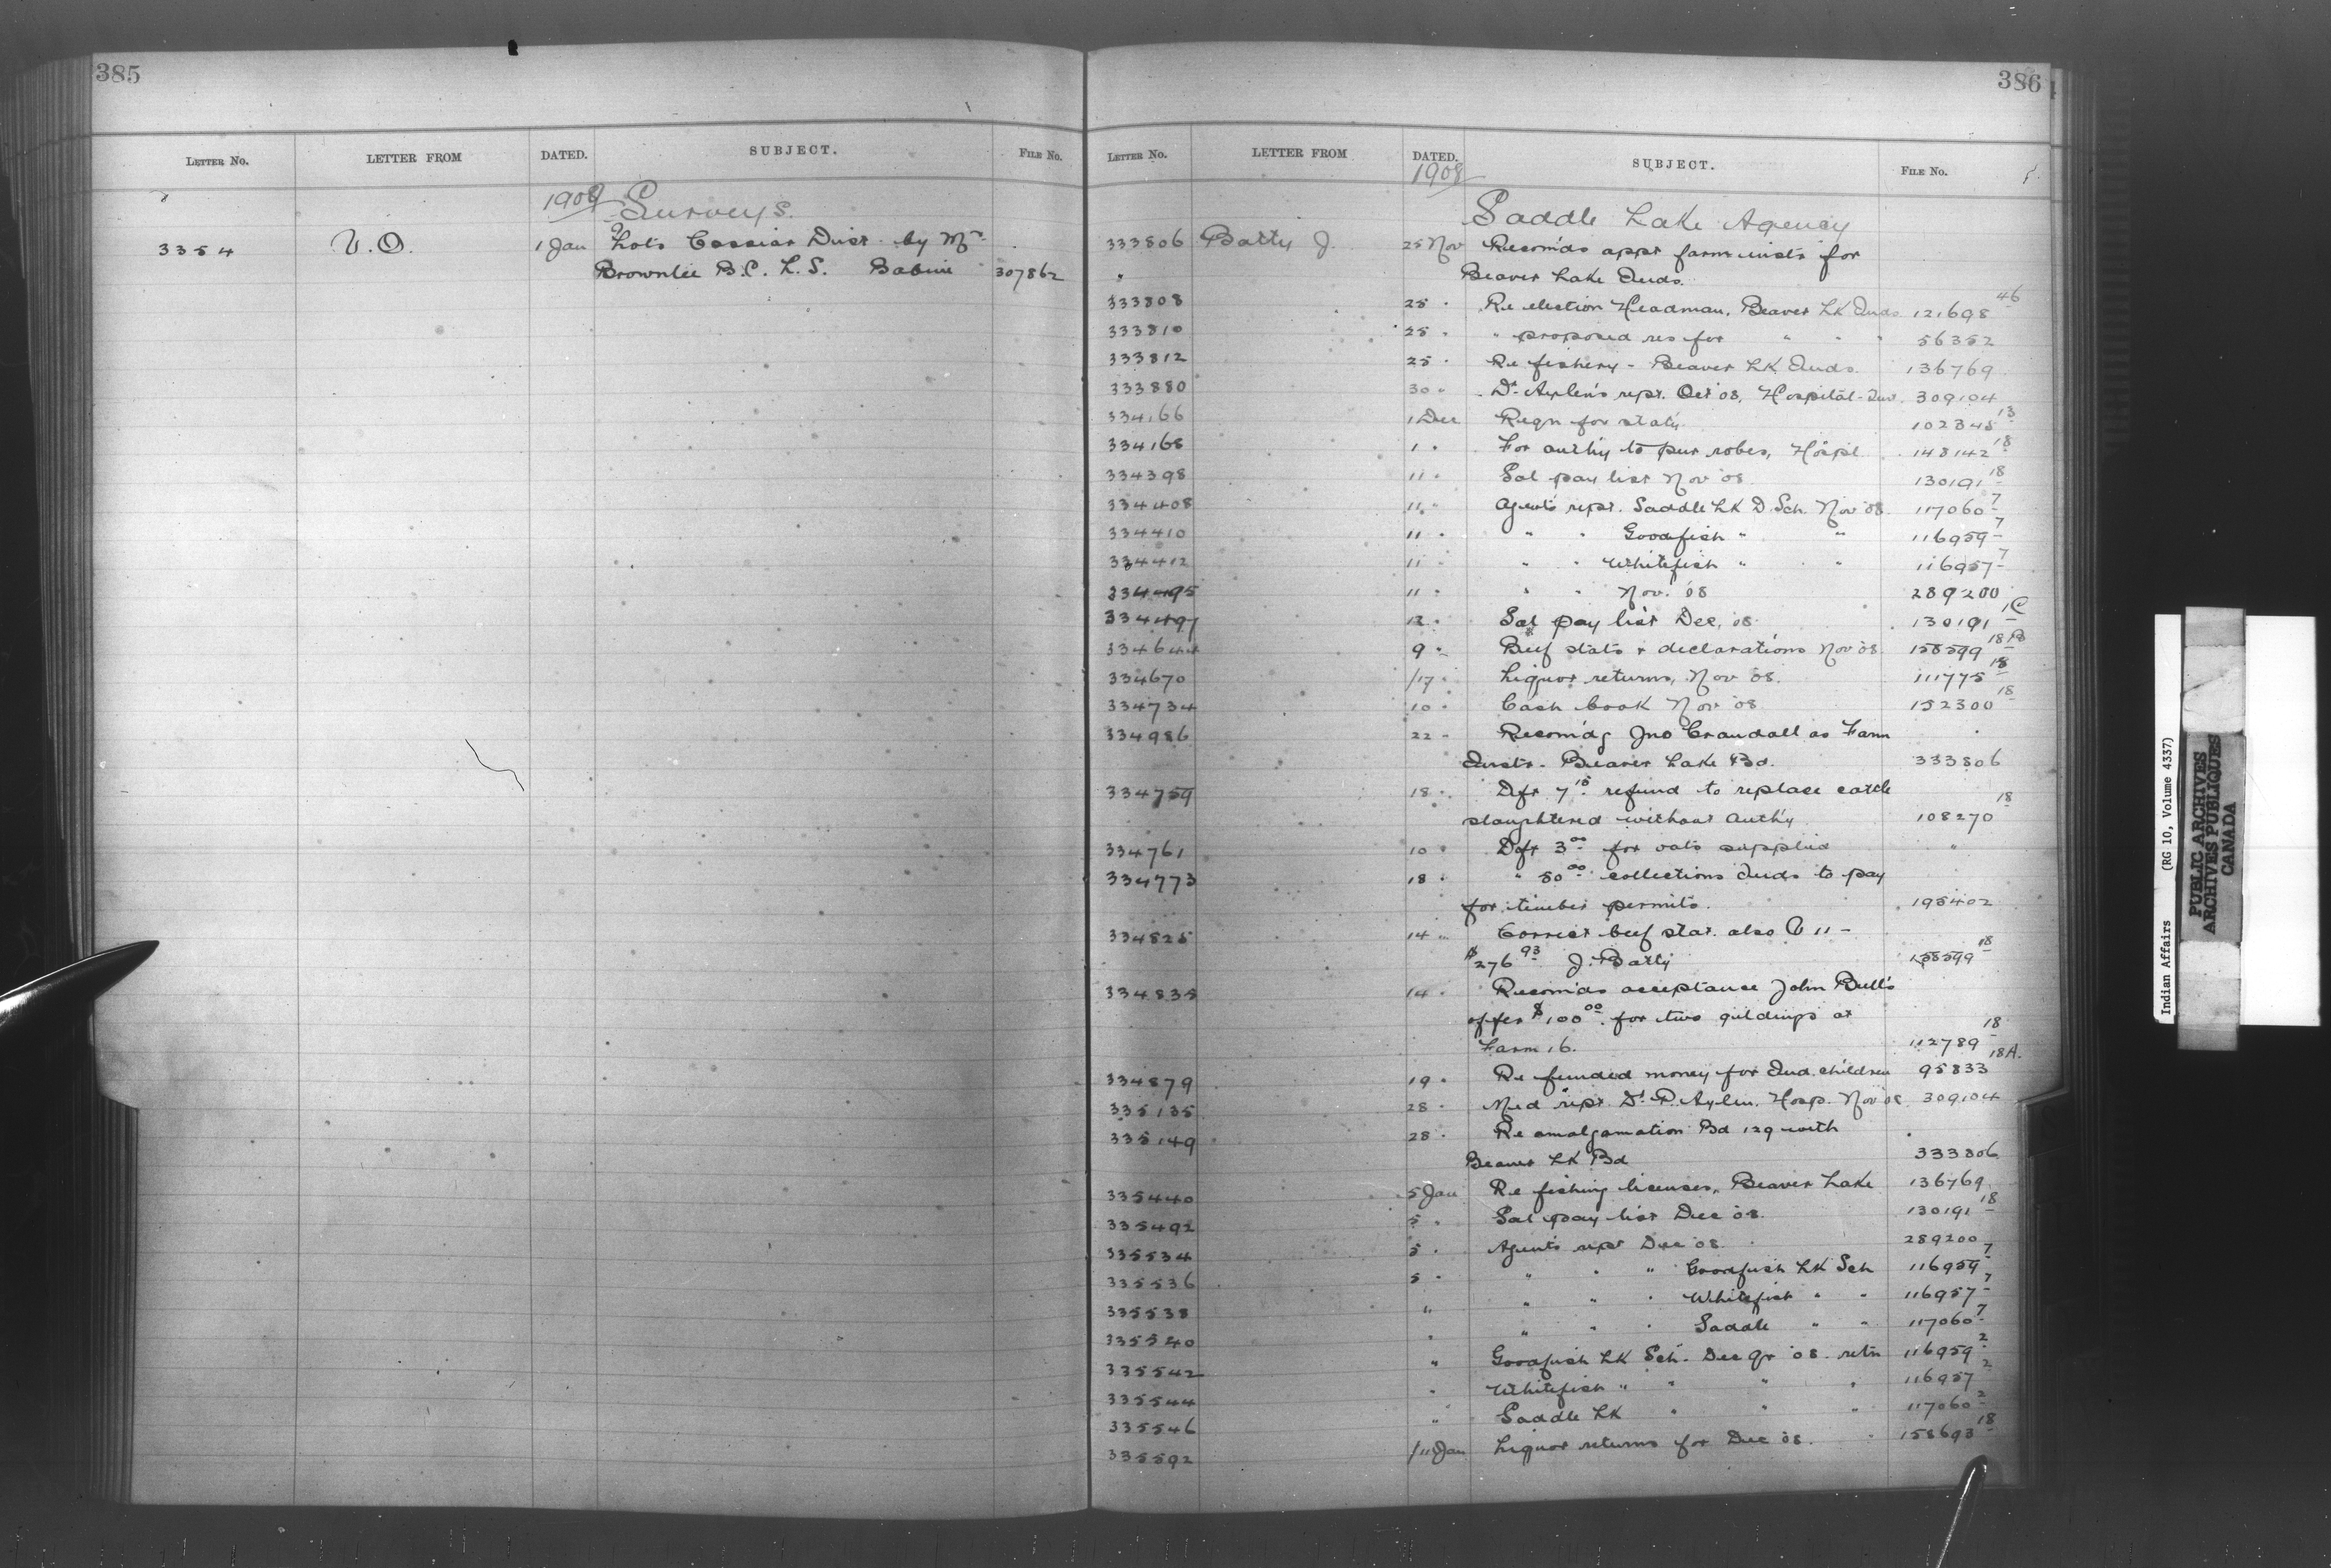 385
LETTER NO. LETTER FROM DATED. SUBJECT. FILE No.
1909 Surveys.
3354 V.O. 1 Jan Lots Cassiar Dist. by Mr.
Brownlee B.C. L.S. Babine 307862
386
LETTER NO. LETTER FROM DATED. SUBJECT. FILE No.
1908
Saddle Lake Agency
333806 Batty J. 25 Nov Recom'ds appt farm instr for
" Beaver Lake Inds.
333808 25 " Re election Headman, Beaver LK Inds 121698 46
333810 25 " " proposed res for " " " 56352
333812 25 " Re fishery - Beaver LK Inds. 136769
333880 30 " Dr. Aylen's rept. Oct '08, Hospital - 309104
334166 1 Dec Reqn for stat'y 102345 13
334168 1 " For auth'y to pur robes, Hospl 148142 18
334398 11 " Sal pay list Nov '08 130191 18
334408 11 " Agent's rept. Saddle LK D. Sch. Nov '08 117060 7
334410 11 " " " Goodfish " " 116959 7
334412 11 " " " Whitefish " " " 116957 7
334495 11 " " " Nov. '08 289200
334497 12 " Sal pay list Dec, '08 130191 18
334644 9 " Beef stats & declarations Nov '08 158599 18B
334670 17 " Liquor returns, Nov '08. 111775 18
334734 10 " Cash book Nov '08 152300 18
334986 22 " Recom'dg Jno Crandall as Farm
Instr - Beaver Lake Bd. 333806
334759 18 " Dft 7 15 refund to replace cattle
slaughtered without auth'y 108270 18
334761 10 " Dft 3 00 for oats supplied "
334773 18 " " 50 00 collections Inds to pay
for timber permits. 195402
334825 14 " Correct beef stat. also V 11 -
$276 93 J. Batty 158599 18
334835 14 " Recom'ds acceptance John Bull's
offer $100 00 for two geldings at
Farm 16. 112789 18
334879 19 " Re funded money for Ind. children 95833 18A.
335135 28 " Med rept. Dr. P. Aylen, Hosp. Nov '08 309104
335149 28 " Re amalgamation Bd 129 with
Beaver LK Bd 333806
335440 5 Jan Re fishing licenses, Beaver Lake 136769
335492 5 " Sal pay list Dec '08. 130191 18
335534 5 " Agent's rept Dec '08. 289200
335536 5 " " " " Goodfish LK Sch 116959 7
335538 " " " " Whitefish " " 116957 7
335540 " " " " Saddle " " 117060 7
335542 " Goodfish LK Sch. Dec Qr '08 retn 116959 2
335544 " Whitefish " " " " 116957 2
335546 " Saddle LK " " " 117060 2
335592 11 Jan Liquor returns for Dec '08. 158693 18
Indian Affairs (RG 10, Volume 4337)
PUBLIC ARCHIVES
ARCHIVES PUBLIQUES
CANADA